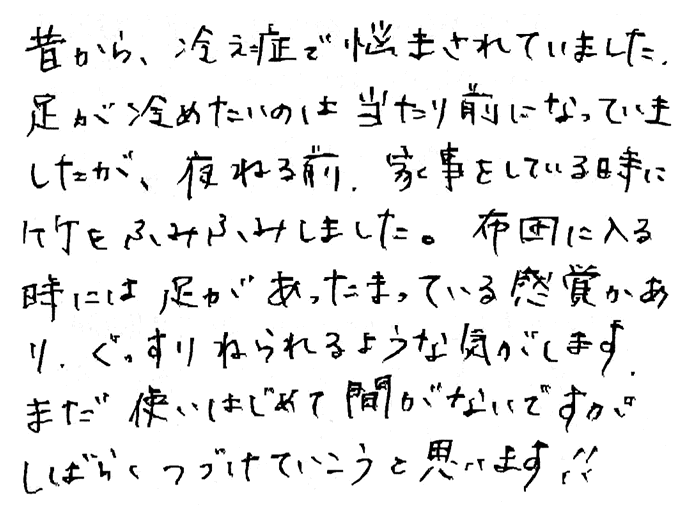 昔から、冷え症で悩まされていました.
足が冷めたいのは当たり前になっていま
したが、夜ねる前、家事をしている時に
竹をふみふみしました。布団に入る
時には足があったまっている感覚があ
り、ぐっすりねられるような気がします.
まだ使いはじめて間がないですが
しばらくつづけていこうと思います!!